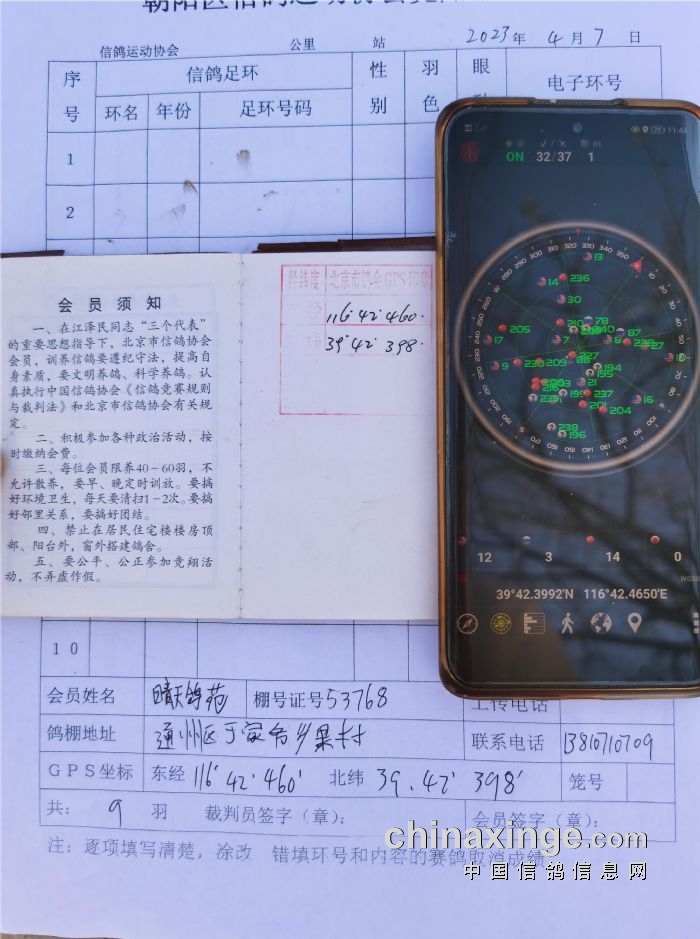 信鸽运动协会 公里 站 2023年 4月7日
序号 信鸽足环 性别 羽色 眼 电子环号
环名 年份 足环号码
1
2
会员须知
一、在江泽民同志“三个代表”
的重要思想指导下，北京市信鸽协会
会员，训养信鸽要遵纪守法，提高自
身素质，要文明养鸽、科学养鸽。认
真执行中国信鸽协会《信鸽竞赛规则
与裁判法》和北京市信鸽协会有关规
定。
二、积极参加各种政治活动，按
时缴纳会费。
三、每位会员限养40-60羽，不
允许散养，要早、晚定时训放。要搞
好环境卫生，每天要清扫1-2次。要搞
好邻里关系，要搞好团结。
四、禁止在居民住宅楼楼房顶
部、阳台外，窗外搭建鸽舍。
五、要公平、公正参加竞翔活
动，不弄虚作假。
经纬度 北京市鸽会GPS印章
经 116°42'460.
纬 39°42'398.
11:44
ON 32/37 1
12 3 14 0
39°42.3992'N 116°42.4650'E
10
会员姓名 晴天鸽苑 棚号证号53768 上传电话
鸽棚地址 通州区于家务乡果村 联系电话 13810710709
GPS坐标 东经 116°42'460' 北纬 39.42' 398' 笼号
共： 9 羽 裁判员签字（章）： 会员签字（章）：
注：逐项填写清楚，涂改 错填环号和内容的赛鸽取消成绩
chinaxinge.com
中国信鸽信息网